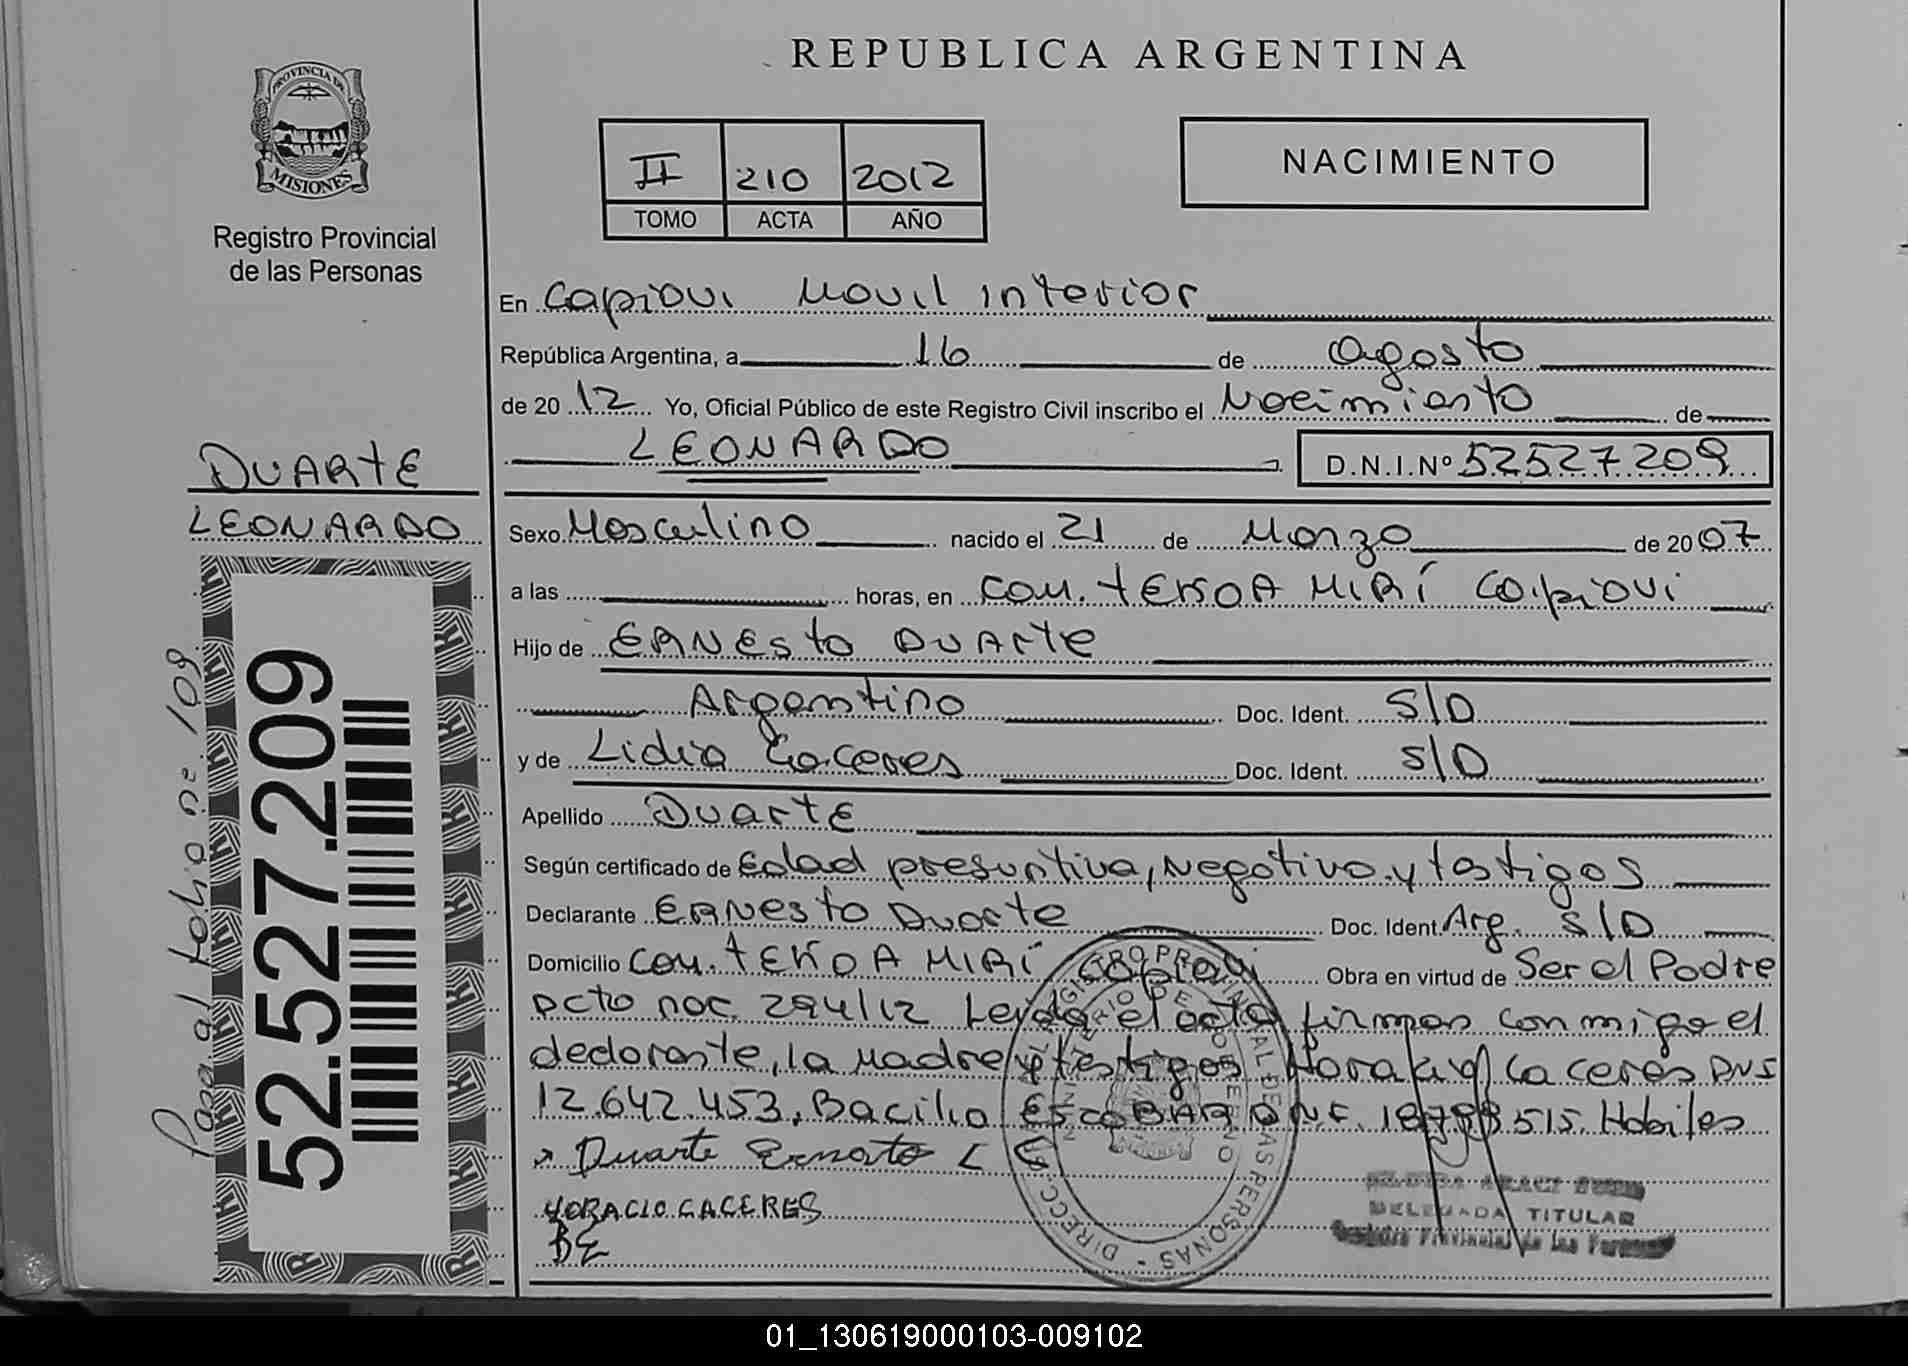 REPUBLICA ARGENTINA
PROVINCIA DE
MISIONES
Registro Provincial
de las Personas
II 210 2012
TOMO ACTA AÑO
NACIMIENTO
En Capiovi Movil interior
República Argentina, a 16 de Agosto
de 2012 Yo, Oficial Público de este Registro Civil inscribo el Nacimiento de
LEONARDO D.N.I.Nº 52527209
DUARTE
LEONARDO
Sexo Masculino nacido el 21 de Marzo de 2007
a las horas, en Com. MIRÍ Capiovi
Hijo de ERNESTO DUARTE
Argentino Doc. Ident. S/D
y de Lidia Caceres Doc. Ident. S/D
Apellido Duarte
Según certificado de Edad presuntiva, Negativo y testigos
Declarante ERNESTO Duarte Doc. Ident. Arg. S/D
Domicilio Com. MIRÍ Capiovi Obra en virtud de Ser el Padre
acta nac. 294/12 Leida el acta firman conmigo el
declarante, la madre y testigos Horacio Caceres DNI
12.642.453, Bacilio EscoBAR 515. Habiles
Duarte Ernesto L C
HORACIO CACERES
BE
DIRECC. REGISTRO PROVINCIAL DE LAS PERSONAS
DELEGADA TITULAR
Registro Provincial de las Personas
Pasa al folio nº 109
52.527.209
01_130619000103-009102